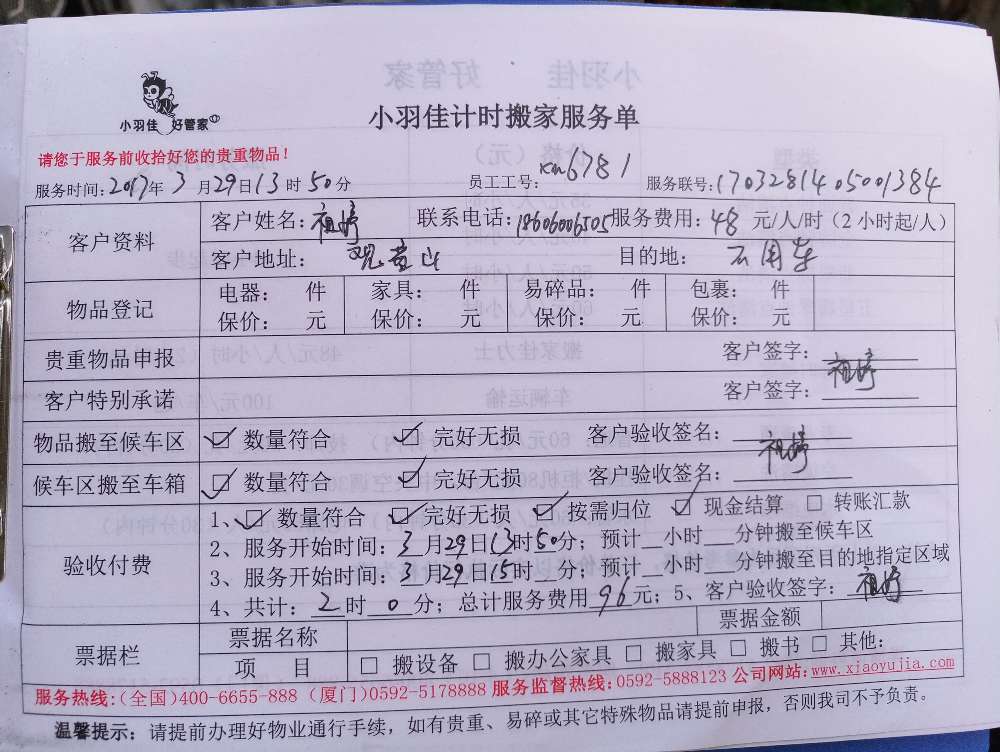 小羽佳 好管家
小羽佳计时搬家服务单
请您于服务前收拾好您的贵重物品！
服务时间：2017年 3 月29日13 时50分 员工工号：xm6781 服务联号：17032814050013​84
客户资料 客户姓名：祖婷 联系电话：18606006505 服务费用：48 元/人/时（2 小时起/人）
客户地址： 观音山 目的地：
物品登记 电器： 件 家具： 件 易碎品： 件 包裹： 件
保价： 元 保价： 元 保价： 元 保价： 元
贵重物品申报 客户签字：祖婷
客户特别承诺 客户签字：
物品搬至候车区 ☑ 数量符合 ☑ 完好无损 客户验收签名：祖婷
候车区搬至车箱 ☑ 数量符合 ☑ 完好无损 客户验收签名：
验收付费 1、☑ 数量符合 ☑ 完好无损 ☑ 按需归位 ☑ 现金结算 □ 转账汇款
2、服务开始时间：3月29日13时50分；预计__小时___分钟搬至候车区
3、服务开始时间：3月29日15时__分；预计__小时___分钟搬至目的地指定区域
4、共计：2时 0 分；总计服务费用 96元；5、客户验收签字：祖婷
票据栏 票据名称 票据金额
项 目 □ 搬设备 □ 搬办公家具 □ 搬家具 □ 搬书 □ 其他：
服务热线：（全国）400-6655-888（厦门）0592-5178888 服务监督热线：0592-5888123 公司网站：www.xiaoyujia.com
温馨提示：请提前办理好物业通行手续，如有贵重、易碎或其它特殊物品请提前申报，否则我司不予负责。